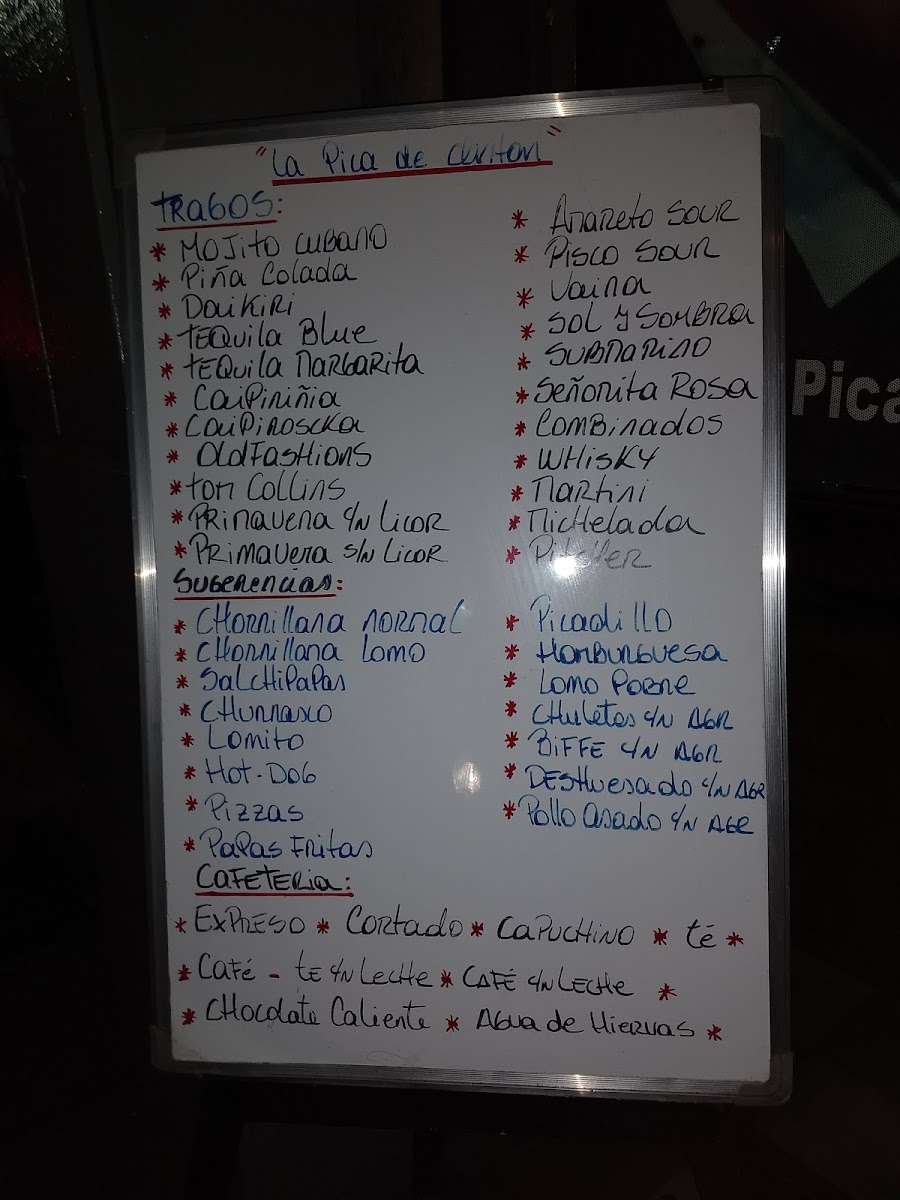 "La Pica de Cleiton"
TRAGOS:
* MOJITO CUBANO
* Piña Colada
* DaiKiRi
* TEQuila Blue
* TEQuila MARGARITA
* CaiPiriñia
* CaiPiROSCKa
* OldFasHions
* TOM COLLinS
* PRIMAVERA C/N LicoR
* PRIMAVERA S/N LicoR
* AMARETO SOUR
* PISCO SOUR
* Vaina
* SOL Y SOMBRA
* SUBMARINO
* SEÑORITA ROSA
* COMBINADOS
* WHISKY
* MARTINI
* MICHELADA
* PitcHER
SUGERENCIAS:
* CHORRillana NORMAL
* CHORRillana LOMO
* SalCHIPAPAS
* CHURRASCO
* LOMITO
* HOT-DOG
* PIZZAS
* PAPAS FRITAS
* Picadillo
* HamBURGUESA
* LOMO POBRE
* CHULETAS C/N AGR
* BIFFE C/N AGR
* DESHUESADO C/N AGR
* Pollo asado C/N AGR
CAFETERIA:
* EXPRESO * CORTADO * CAPUCHINO * té *
* Café - TE C/N LECHE * CAFÉ C/N LECHE *
* CHocolate Caliente * Agua de HIERVAS *
Pica